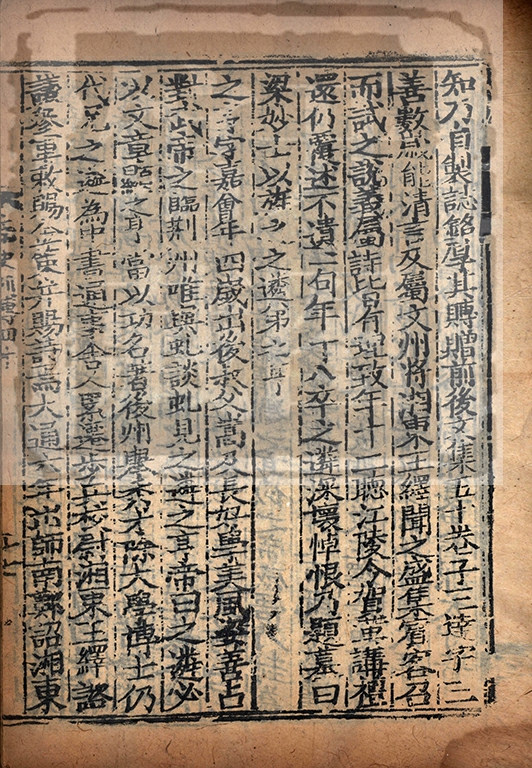 知乃自製誌銘厚其賻贈前後文集五十卷子三達字三
善數歲能清言及屬文州將湘東王繹聞之盛集賓客召
而試之說義屬詩皆有理致年十二聽江陵令賀革講禮
還仍覆述不遺一句年十八卒之遴深懷悼恨乃題墓曰
梁妙士以旌之之遴弟之亨
之亨字嘉會年四歲出後叔父嵩及長好學美風姿善占
對武帝之臨荊州唯與虬談虬見之遴之亨帝曰之遴必
以文章顯之亨當以功名著後州舉秀才除太學博士仍
代兄之遴為中書通事舍人累遷步兵校尉湘東王繹諮
議參軍敕賜金策并賜詩焉大通六年出師南鄭詔湘東